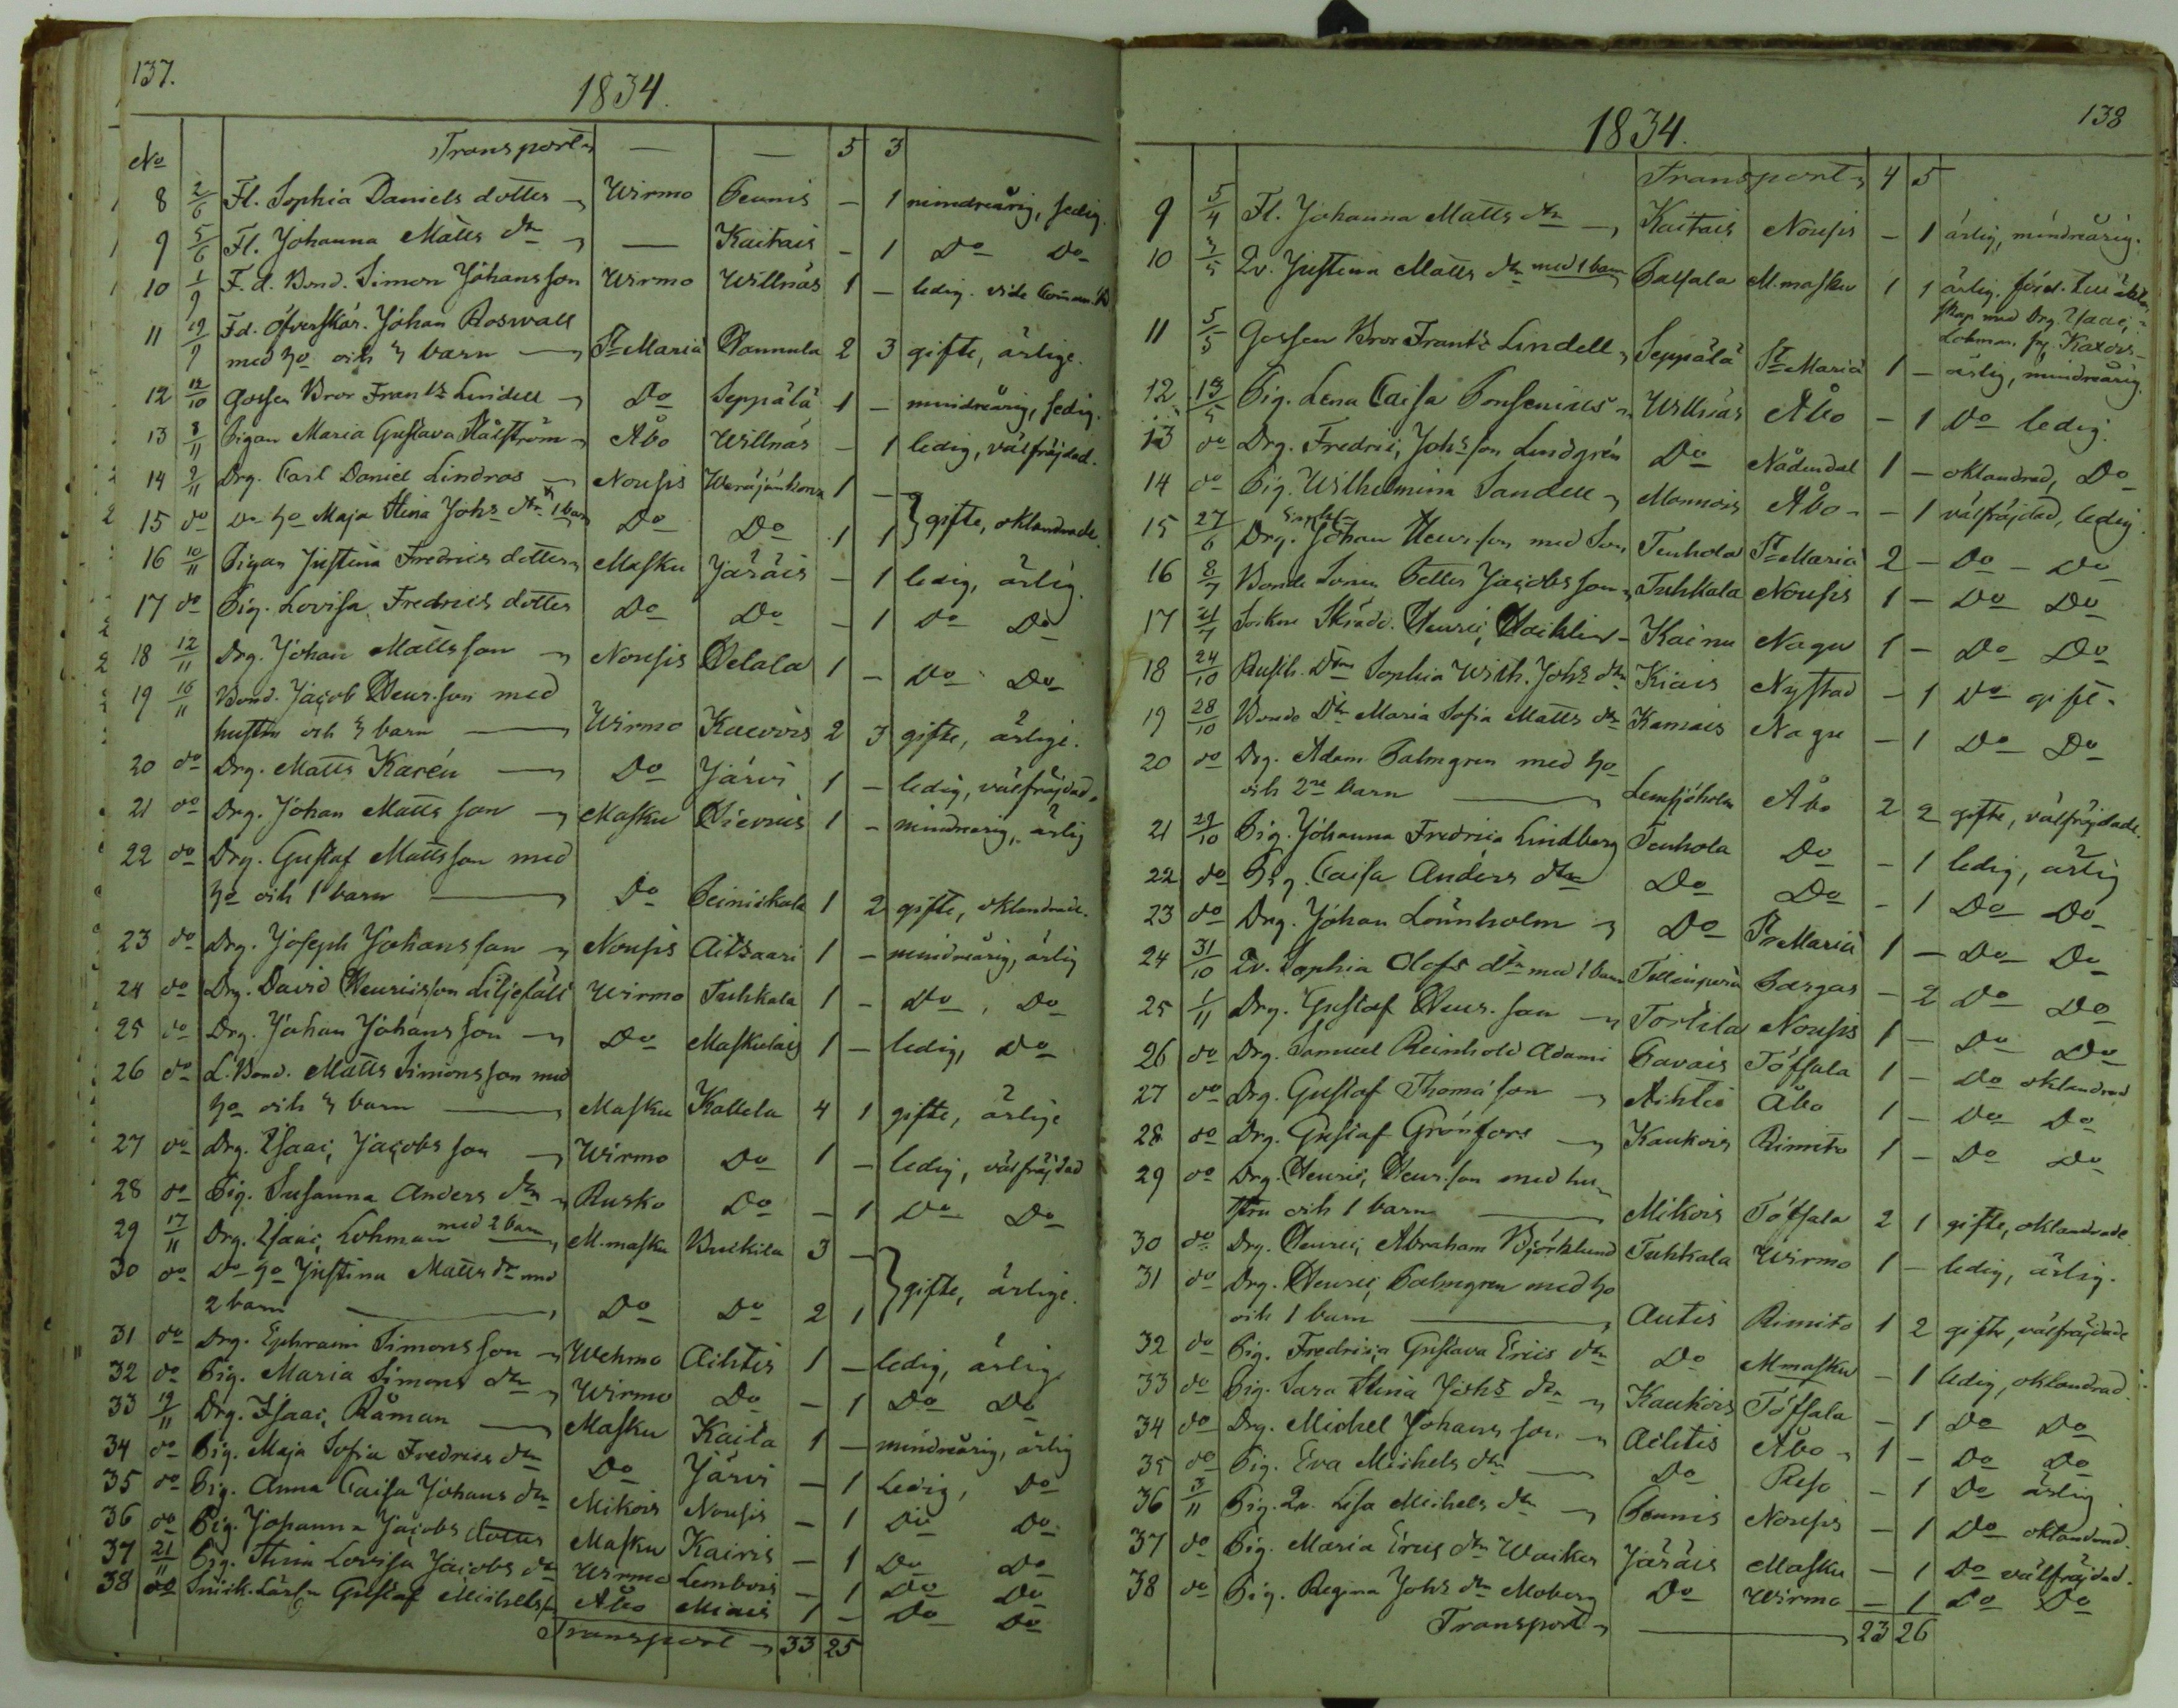 137.
1834.
No Transport — — 5 3
8 2/6 Fl. Sophia Daniels dotter Wirmo Peunis — 1 mindreårig, ledig.
9 5/6 Fl. Johanna Matts dr — Kaitais — 1 Do Do
10 1/9 F. d. Bond. Simon Johansson Wirmo Willnäs 1 — ledig. vide
11 19/9 Fd. öfverskär. Johan Roswall
med ho och 3 barn St Maria Hannula 2 3 gifte, ärlige.
12 12/10 gossen Bror Frantz Lindell Do Seppälä 1 — mindreårig, ledig.
13 8/11 Pigan Maria Gustava Hälström Åbo Willnäs — 1 ledig, välfräjdad.
14 9/11 Drg. Carl Daniel Lindros Nousis Waräjänkona 1 —
15 do Do ho Maja Stina Johs dr 1 barn Do Do 1 1 gifte, oklandrade.
16 10/11 Pigan Justina Fredrics dotter Masku Järäis — 1 ledig, ärlig.
17 do Pig. Lovisa Fredrics dotter Do Do — 1 Do Do
18 12/11 Drg. Johan Mattsson Nousis Helala 1 — Do Do
19 16/11 Bond. Jacob Henr.son med
hustru och 3 barn Wirmo Kaurois 2 3 gifte, ärlige.
20 do Drg. Matts Karén Do Järvi 1 — ledig, välfräjdad.
21 do Drg. Johan Matts son Masku Hiervois 1 — mindreårig, ärlig
22 do Drg. Gustaf Mattsson med
ho och 1 barn Do Peiniskala 1 2 gifte, oklandrade.
23 do Drg. Joseph Johansson Nousis Aitsaari 1 — mindreårig, ärlig
24 do Drg. David Henricsson Liljefält Wirmo Tuhkala 1 — Do, Do
25 do Drg. Johan Johansson Do Maskulais 1 — ledig, Do
26 do L. Bond. Matts Simonsson med
ho och 3 barn Masku Kallela 4 1 gifte, ärlige
27 do Drg. Isaac Jacobs son Wirmo Do 1 — ledig, välfräjdad
28 do Pig. Susanna Anders dr Rusko Do — 1 Do Do
29 17/11 Drg. Isaac Lohman med 2 barn M.masku Buskila 3 —
30 do Do ho Justina Matts dr med
2 barn Do Do 2 1 gifte, ärlige.
31 do Drg. Ephraim Simonsson Wehmo Aihtis 1 — ledig, ärlig
32 do Pig. Maria Simons dr Wirmo Do — 1 Do Do
33 19/11 Drg. Isaac Råman Masku Kaila 1 — mindreårig, ärlig
34 do Pig. Maja Sofia Fredrics dr Do Järvi — 1 Ledig, Do
35 do Pig. Anna Caisa Johans dr Mikois Nousis — 1 Do Do
36 do Pig. Johanna Jacobs dotter Masku Kairis — 1 Do Do
37 21/11 Pig. Stina Lovisa Jacobs dr Wirmo Lembois — 1 Do Do
38 do Snick. Lärl. Gustaf Michelss. Åbo Miais 1 — Do Do
Transport 33 25
138
1834.
Transport 4 5
9 5/4 Fl. Johanna Matts dr Kaitais Nousis — 1 ärlig, mindreårig.
10 3/5 Qv. Justina Matts dr med 1 barn Palsala M.masku 1 1 ärlig. förd. till äkten
skap med Drg. Isaac
Lohman
11 5/5 Gossen Bror Frantz Lindell Seppälä St Maria 1 — ärlig, mindreårig
12 13/5 Pig. Lena Caisa Ponsenius Willnäs Åbo — 1 Do ledig.
13 do Drg. Fredric Johsson Lindgrén Do Nådendal 1 — oklandrad, Do
14 do Pig. Wilhelmina Sandell Monnois Åbo — 1 välfräjdad, ledig
15 27/6 Drg. Johan Henrsson med Son Tenhola St Maria 2 — Do — Do
16 8/7 Bonde Sonen Petter Jacobsson Tuhkala Nousis 1 — Do Do
17 21/7 Sockne Skrädd. Henric Hacklin Kainu Nagu 1 — Do Do
18 24/10 Rusth. Dtr Sophia Wilh. Johs dr Kiais Nystad — 1 Do gift.
19 28/10 Bonde Dtr Maria Sofia Matts dr Kamais Nagu — 1 Do Do
20 do Drg. Adam Palmgren med ho
och 2ne barn Lemsjöholm Åbo 2 2 gifte, välfräjdade.
21 29/10 Pig. Johanna Fredrica Lindberg Tenhola Do — 1 ledig, ärlig
22 do Pig. Caisa Anders dtr Do Do — 1 Do Do
23 do Drg. Johan Lönnholm Do St Maria 1 — Do Do
24 31/10 Qv. Sophia Olofs dtr med 1 barn Pargas — 2 Do Do
25 1/11 Drg. Gustaf Henr. son Tortila Nousis 1 — Do Do
26 do Drg. Samuel Reinhold Adami Pavais Töffsala 1 — Do oklandrad
27 do Drg. Gustaf Thomasson Aihtis Åbo 1 — Do Do
28 do Drg. Gustaf Grönfors Kaukois Rimito 1 — Do Do
29 do Drg. Henric Henr.son med hu-
stru och 1 barn Mikois Töfsala 2 1 gifte, oklandrade
30 do Drg. Henric Abraham Björklund Tuhkala Wirmo 1 — ledig, ärlig.
31 do Drg. Henric Palmgren med ho
och 1 barn Autis Rimito 1 2 gifte, välfräjdade
32 do Pig. Fredrica Gustava Erics dtr Do Mmasku — 1 ledig, oklandrad.
33 do Pig. Sara Stina Johs dtr Kaukois Töffsala — 1 Do Do
34 do Drg. Michel Johansson Aihtis Åbo 1 — Do Do
35 do Pig. Eva Michels dtr Do Reso — 1 Do ärlig
36 3/11 Pig. Qv. Lisa Michels dtr Peunis Nousis — 1 Do oklandrad.
37 do Pig. Maria Erics dtr Waiker Järäis Masku — 1 Do välfräjdad.
38 do Pig. Regina Johs dtr Moberg Do Wirmo — 1 Do Do
Transport 23 26